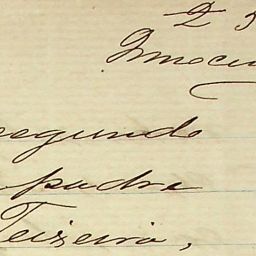 D
Innocen
segundo
padre
Teixeira,